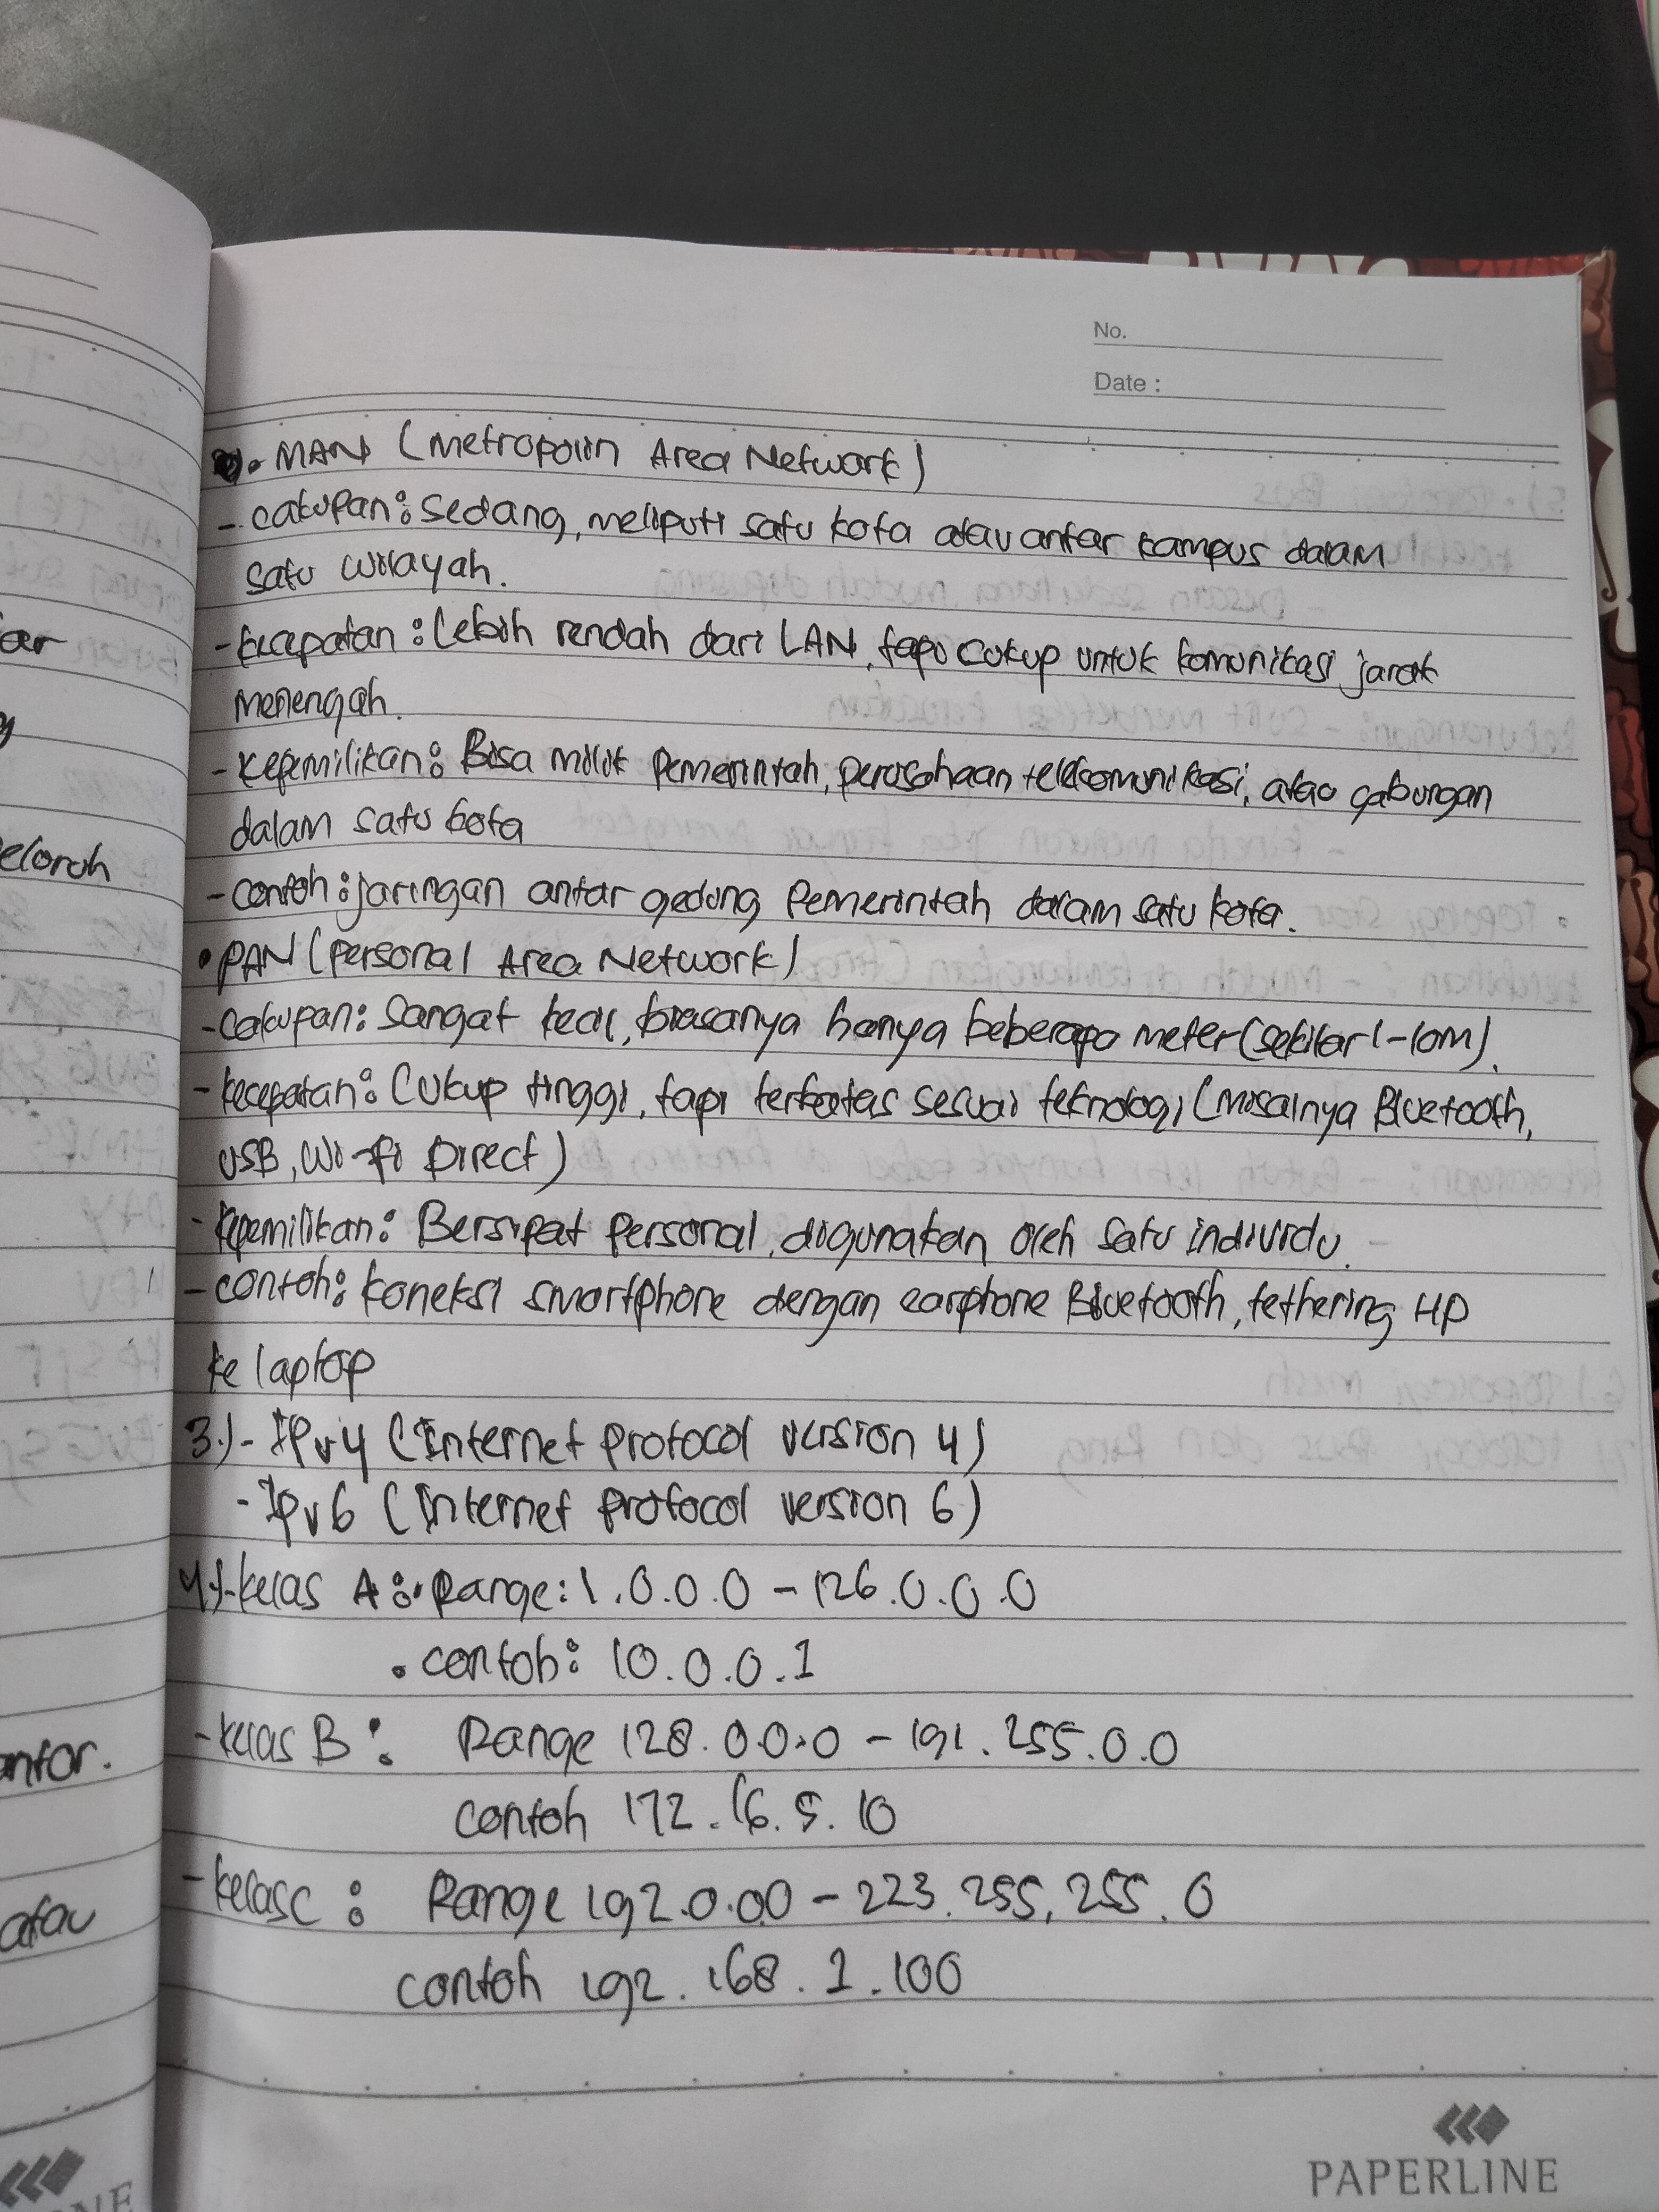 No.
Date :
• MAN (Metropolin Area Network)
- cakupan : sedang, meliputi satu kota atau antar kampus dalam
satu wilayah.
- kecepatan : Lebih rendah dari LAN, tapi cukup untuk komunikasi jarak
menengah.
- Kepemilikan : Bisa milik Pemerintah, perusahaan telekomunikasi, atau gabungan
dalam satu kota
- contoh : jaringan antar gedung Pemerintah dalam satu kota.
• PAN (Personal Area Network)
- cakupan : Sangat kecil, biasanya hanya beberapa meter (sekitar 1-10m).
- kecepatan : Cukup tinggi, tapi terbatas sesuai teknologi (misalnya Bluetooth,
USB, Wi-fi Direct)
- kepemilikan : Bersipat Personal, digunakan oleh satu individu.
- contoh : koneksi smartphone dengan earphone Bluetooth, tethering HP
ke laptop
3.) - IPv4 (Internet Protocol version 4)
- IPv6 (Internet Protocol version 6)
4.) - kelas A : • Range : 1.0.0.0 - 126.0.0.0
• contoh : 10.0.0.1
- kelas B : Range 128.0.0.0 - 191.255.0.0
contoh 172.16.5.10
- kelas C : Range 192.0.0.0 - 223.255.255.0
contoh 192.168.1.100
PAPERLINE
eloroh
antar.
atau